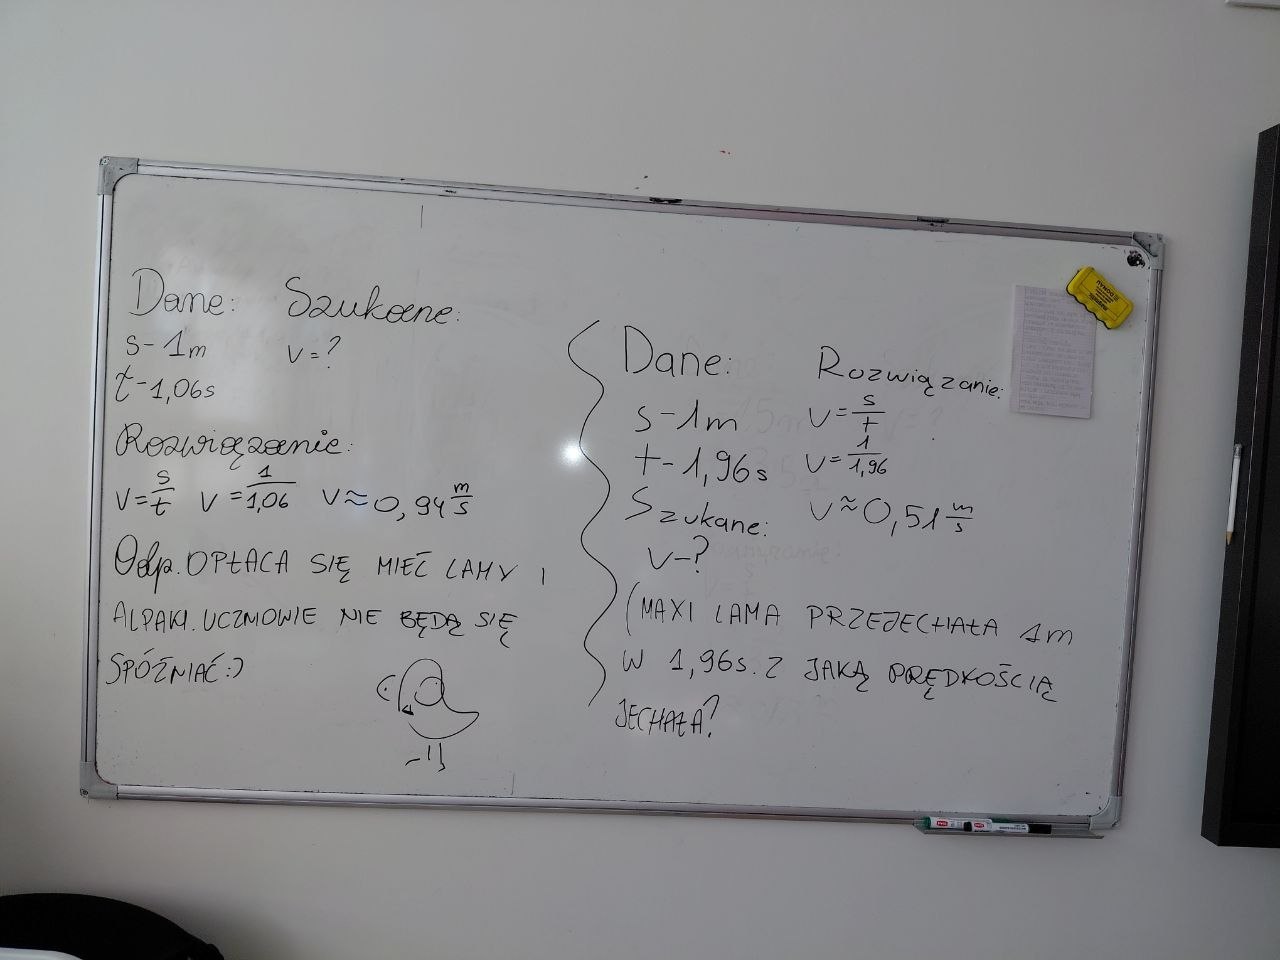 Dane: Szukane:
s-1m v=?
t-1,06s
Rozwiązanie:
v=s/t v=1/1,06 v≈0,94 m/s
Odp. OPŁACA SIĘ MIEĆ LAMY I
ALPAKI. UCZNIOWIE NIE BĘDĄ SIĘ
SPÓŹNIAĆ:)
Dane:
s-1m
t-1,96s
Szukane:
v-?
Rozwiązanie:
v=s/t
v=1/1,96
v≈0,51 m/s
(MAXI LAMA PRZEJECHAŁA 1m
W 1,96s. Z JAKĄ PRĘDKOŚCIĄ
JECHAŁA?